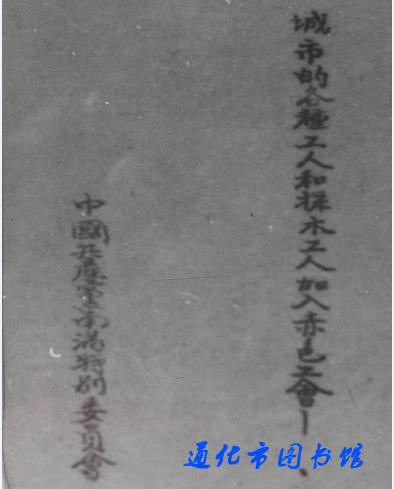 城市的各種工人和採木工人加入赤色工會！
中國共產黨南滿特別委員會
通化市图书馆